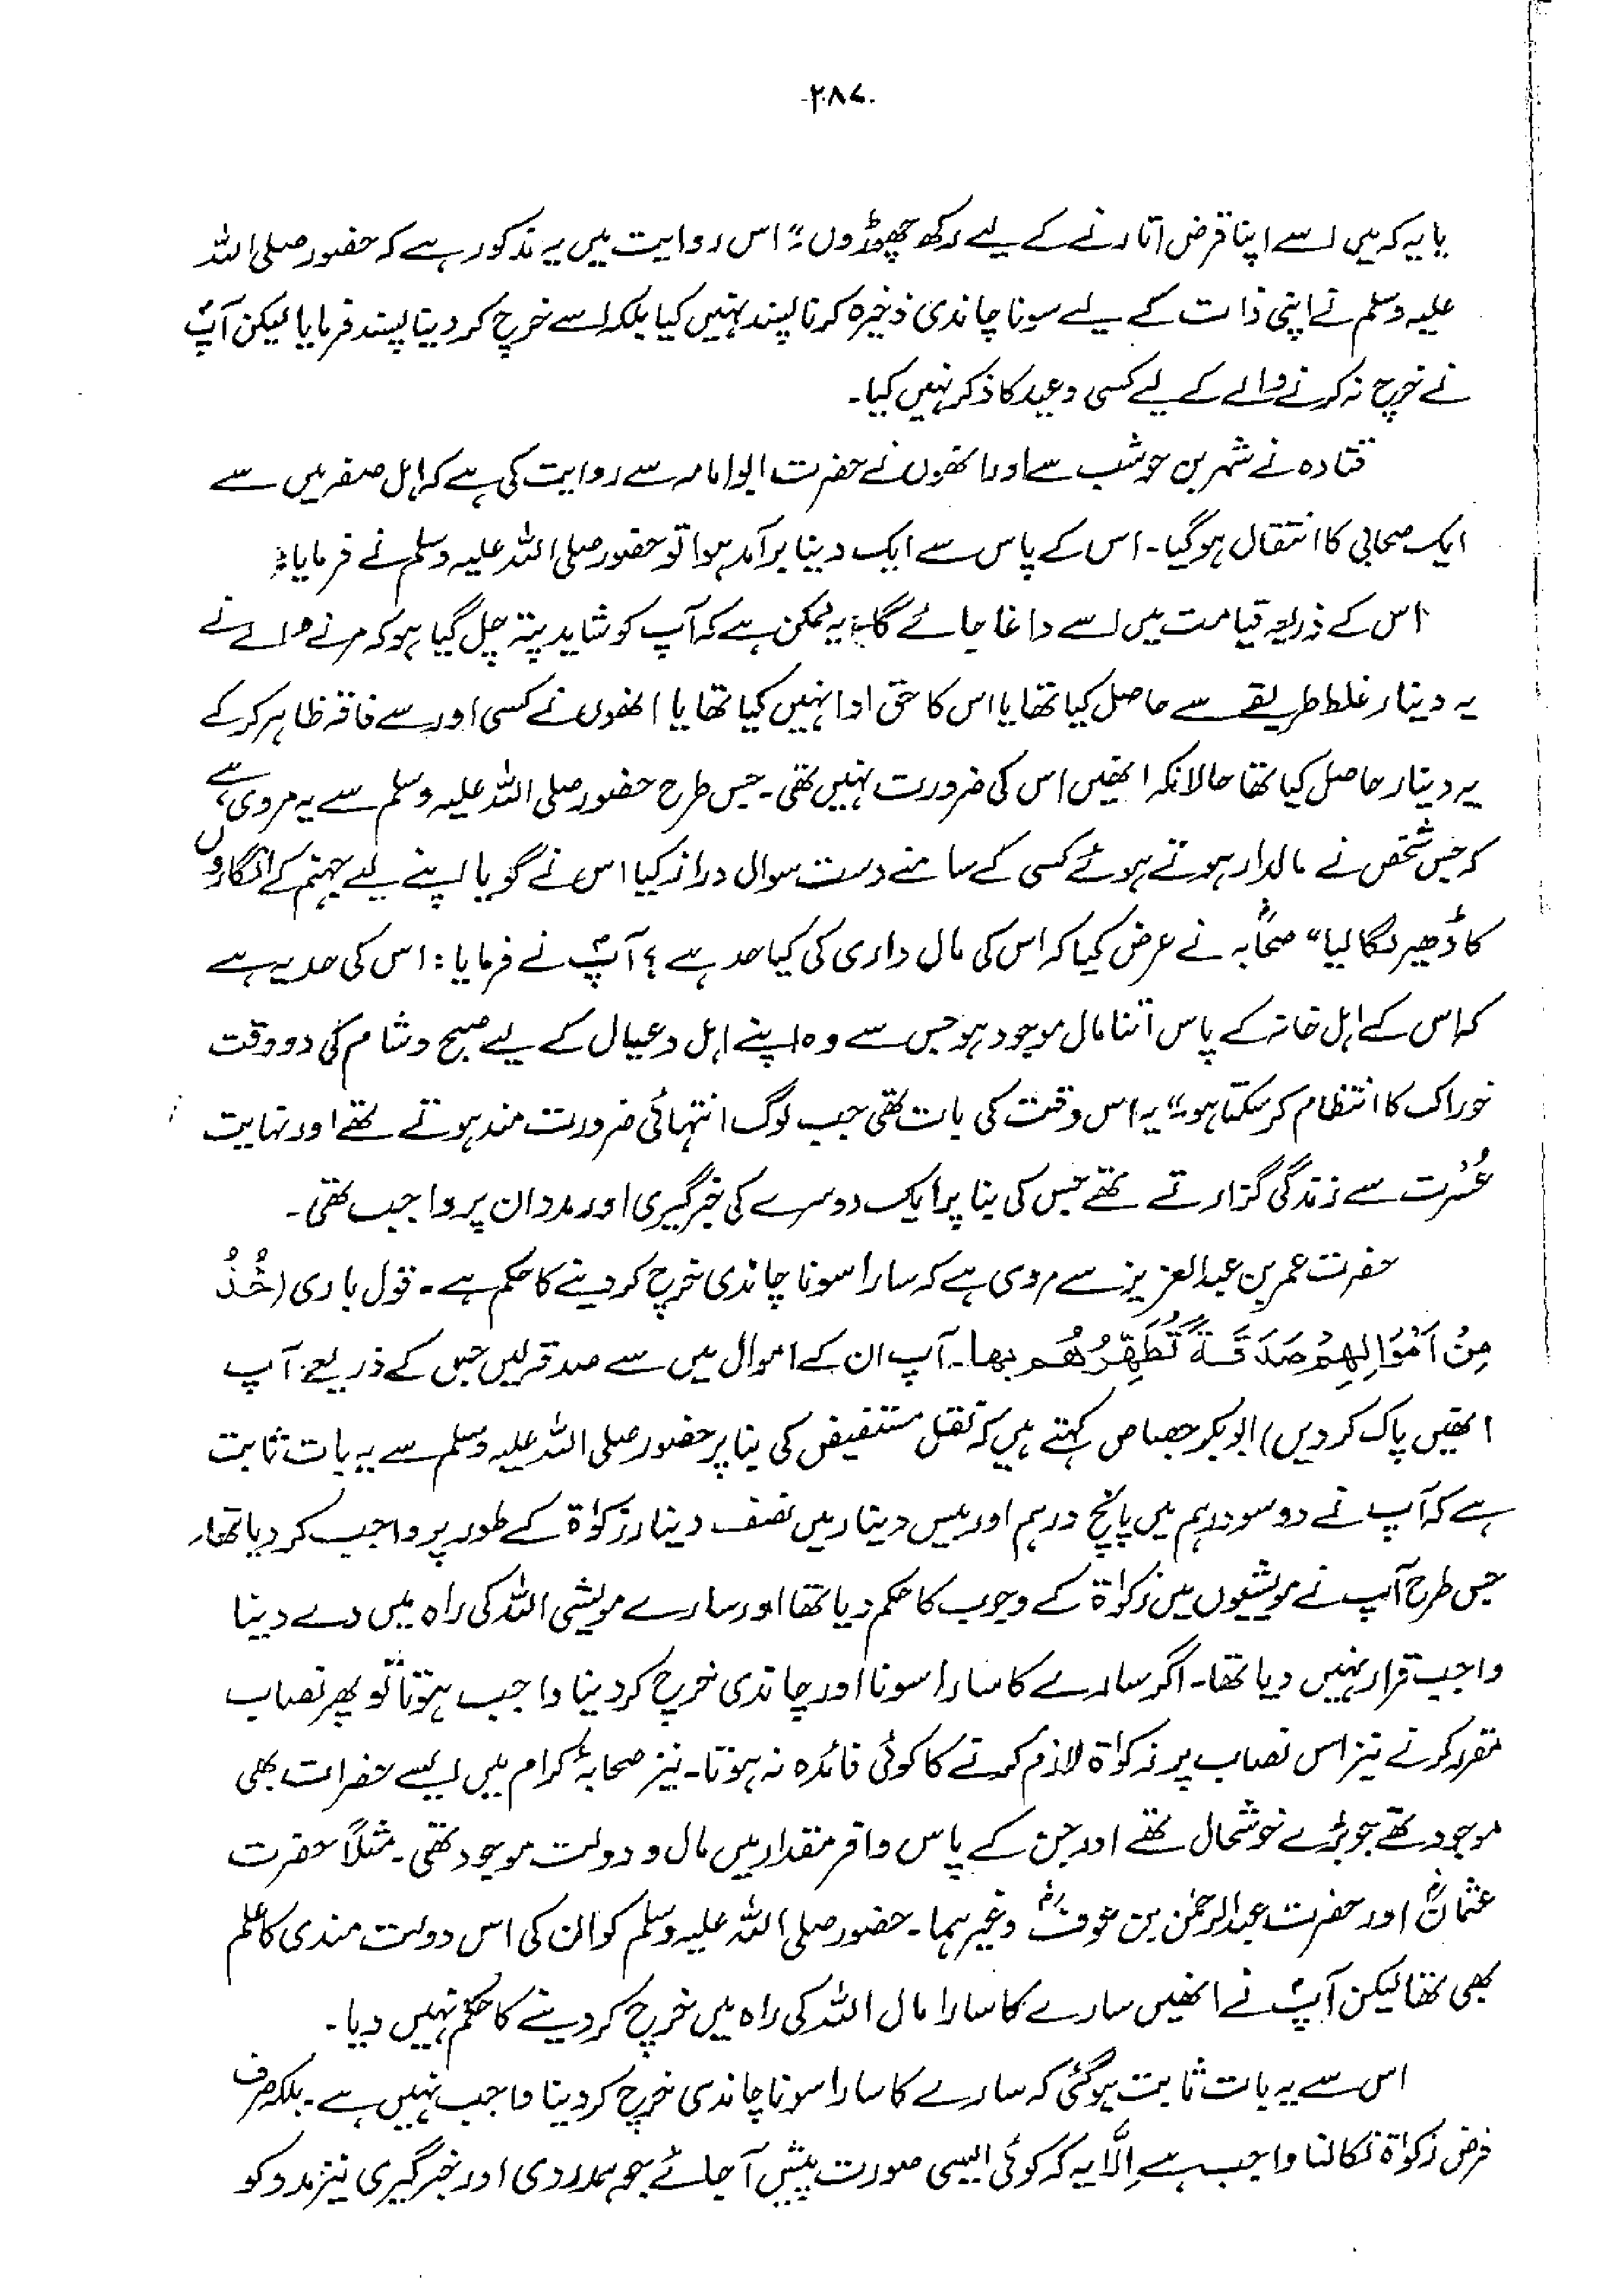 ۲۸۷
یا یہ کہ میں اسے اپنا قرض اتارنے کے لیے رکھ چھوڑوں" اس روایت میں یہ مذکور ہے کہ حضور صلی اللہ
علیہ وسلم نے اپنی ذات کے لیے سونا چاندی ذخیرہ کرنا پسند نہیں کیا بلکہ اسے خرچ کر دینا پسند فرمایا لیکن آپؐ
نے خرچ نہ کرنے والے کے لیے کسی وعید کا ذکر نہیں کیا۔
قتادہ نے شہر بن حوشب سے اور انھوں نے حضرت ابو امامہ سے روایت کی ہے کہ اہل صفہ میں سے
ایک صحابی کا انتقال ہو گیا۔ اس کے پاس سے ایک دینار برآمد ہوا تو حضور صلی اللہ علیہ وسلم نے فرمایا:
"اس کے ذریعہ قیامت میں اسے داغا جائے گا" یہ ممکن ہے کہ آپ کو شاید پتہ چل گیا ہو کہ مرنے والے نے
یہ دینار غلط طریقے سے حاصل کیا تھا یا اس کا حق ادا نہیں کیا تھا یا انھوں نے کسی اور سے فاقہ ظاہر کر کے
یہ دینار حاصل کیا تھا حالانکہ انھیں اس کی ضرورت نہیں تھی۔ جس طرح حضور صلی اللہ علیہ وسلم سے یہ مروی ہے،
کہ جس شخص نے مالدار ہوتے ہوئے کسی کے سامنے دست سوال دراز کیا اس نے گویا اپنے لیے جہنم کے انگاروں
کا ڈھیر لگا لیا" صحابہؓ نے عرض کیا کہ اس کی مال داری کی کیا حد ہے؟ آپؐ نے فرمایا: اس کی حد یہ ہے
کہ اس کے اہل خانہ کے پاس اتنا مال موجود ہو جس سے وہ اپنے اہل و عیال کے لیے صبح و شام کی دو وقت
خوراک کا انتظام کر سکتا ہو" یہ اس وقت کی بات تھی جب لوگ انتہائی ضرورت مند ہوتے تھے اور نہایت
عُسْرت سے زندگی گزارتے تھے جس کی بنا پر ایک دوسرے کی خبرگیری اور مدد ان پر واجب تھی۔
حضرت عمر بن عبدالعزیز سے مروی ہے کہ سارا سونا چاندی خرچ کر دینے کا حکم ہے۔ قول باری (خُذْ
مِنْ اَمْوَالِهِمْ صَدَقَةً تُطَهِّرُهُمْ بها۔ آپ ان کے اموال میں سے صدقہ لیں جس کے ذریعے آپ
انھیں پاک کر دیں) ابوبکر جصاص کہتے ہیں کہ نقل مستفیض کی بنا پر حضور صلی اللہ علیہ وسلم سے یہ بات ثابت
ہے کہ آپ نے دو سو درہم میں پانچ درہم اور بیس دینار میں نصف دینار زکوٰۃ کے طور پر واجب کر دیا تھا۔
جس طرح آپ نے مویشیوں میں زکوٰۃ کے وجوب کا حکم دیا تھا اور سارے مویشی اللہ کی راہ میں دے دینا
واجب قرار نہیں دیا تھا۔ اگر سارے کا سارا سونا اور چاندی خرچ کر دینا واجب ہوتا تو پھر نصاب
مقرر کرنے نیز اس نصاب پر زکوٰۃ لازم کرنے کا کوئی فائدہ نہ ہوتا۔ نیز صحابۂ کرام میں ایسے حضرات بھی
موجود تھے جو بڑے خوشحال تھے اور جن کے پاس وافر مقدار میں مال و دولت موجود تھی۔ مثلاً حضرت
عثمانؓ اور حضرت عبدالرحمٰن بن عوفؓ وغیرہما۔ حضور صلی اللہ علیہ وسلم کو ان کی اس دولت مندی کا علم
بھی تھا لیکن آپؐ نے انھیں سارے کا سارا مال اللہ کی راہ میں خرچ کر دینے کا حکم نہیں دیا۔
اس سے یہ بات ثابت ہو گئی کہ سارے کا سارا سونا چاندی خرچ کر دینا واجب نہیں ہے۔ بلکہ صرف
فرض زکوٰۃ نکالنا واجب ہے اِلّا یہ کہ کوئی ایسی صورت پیش آ جائے جو ہمدردی اور خبرگیری نیز مدد کو